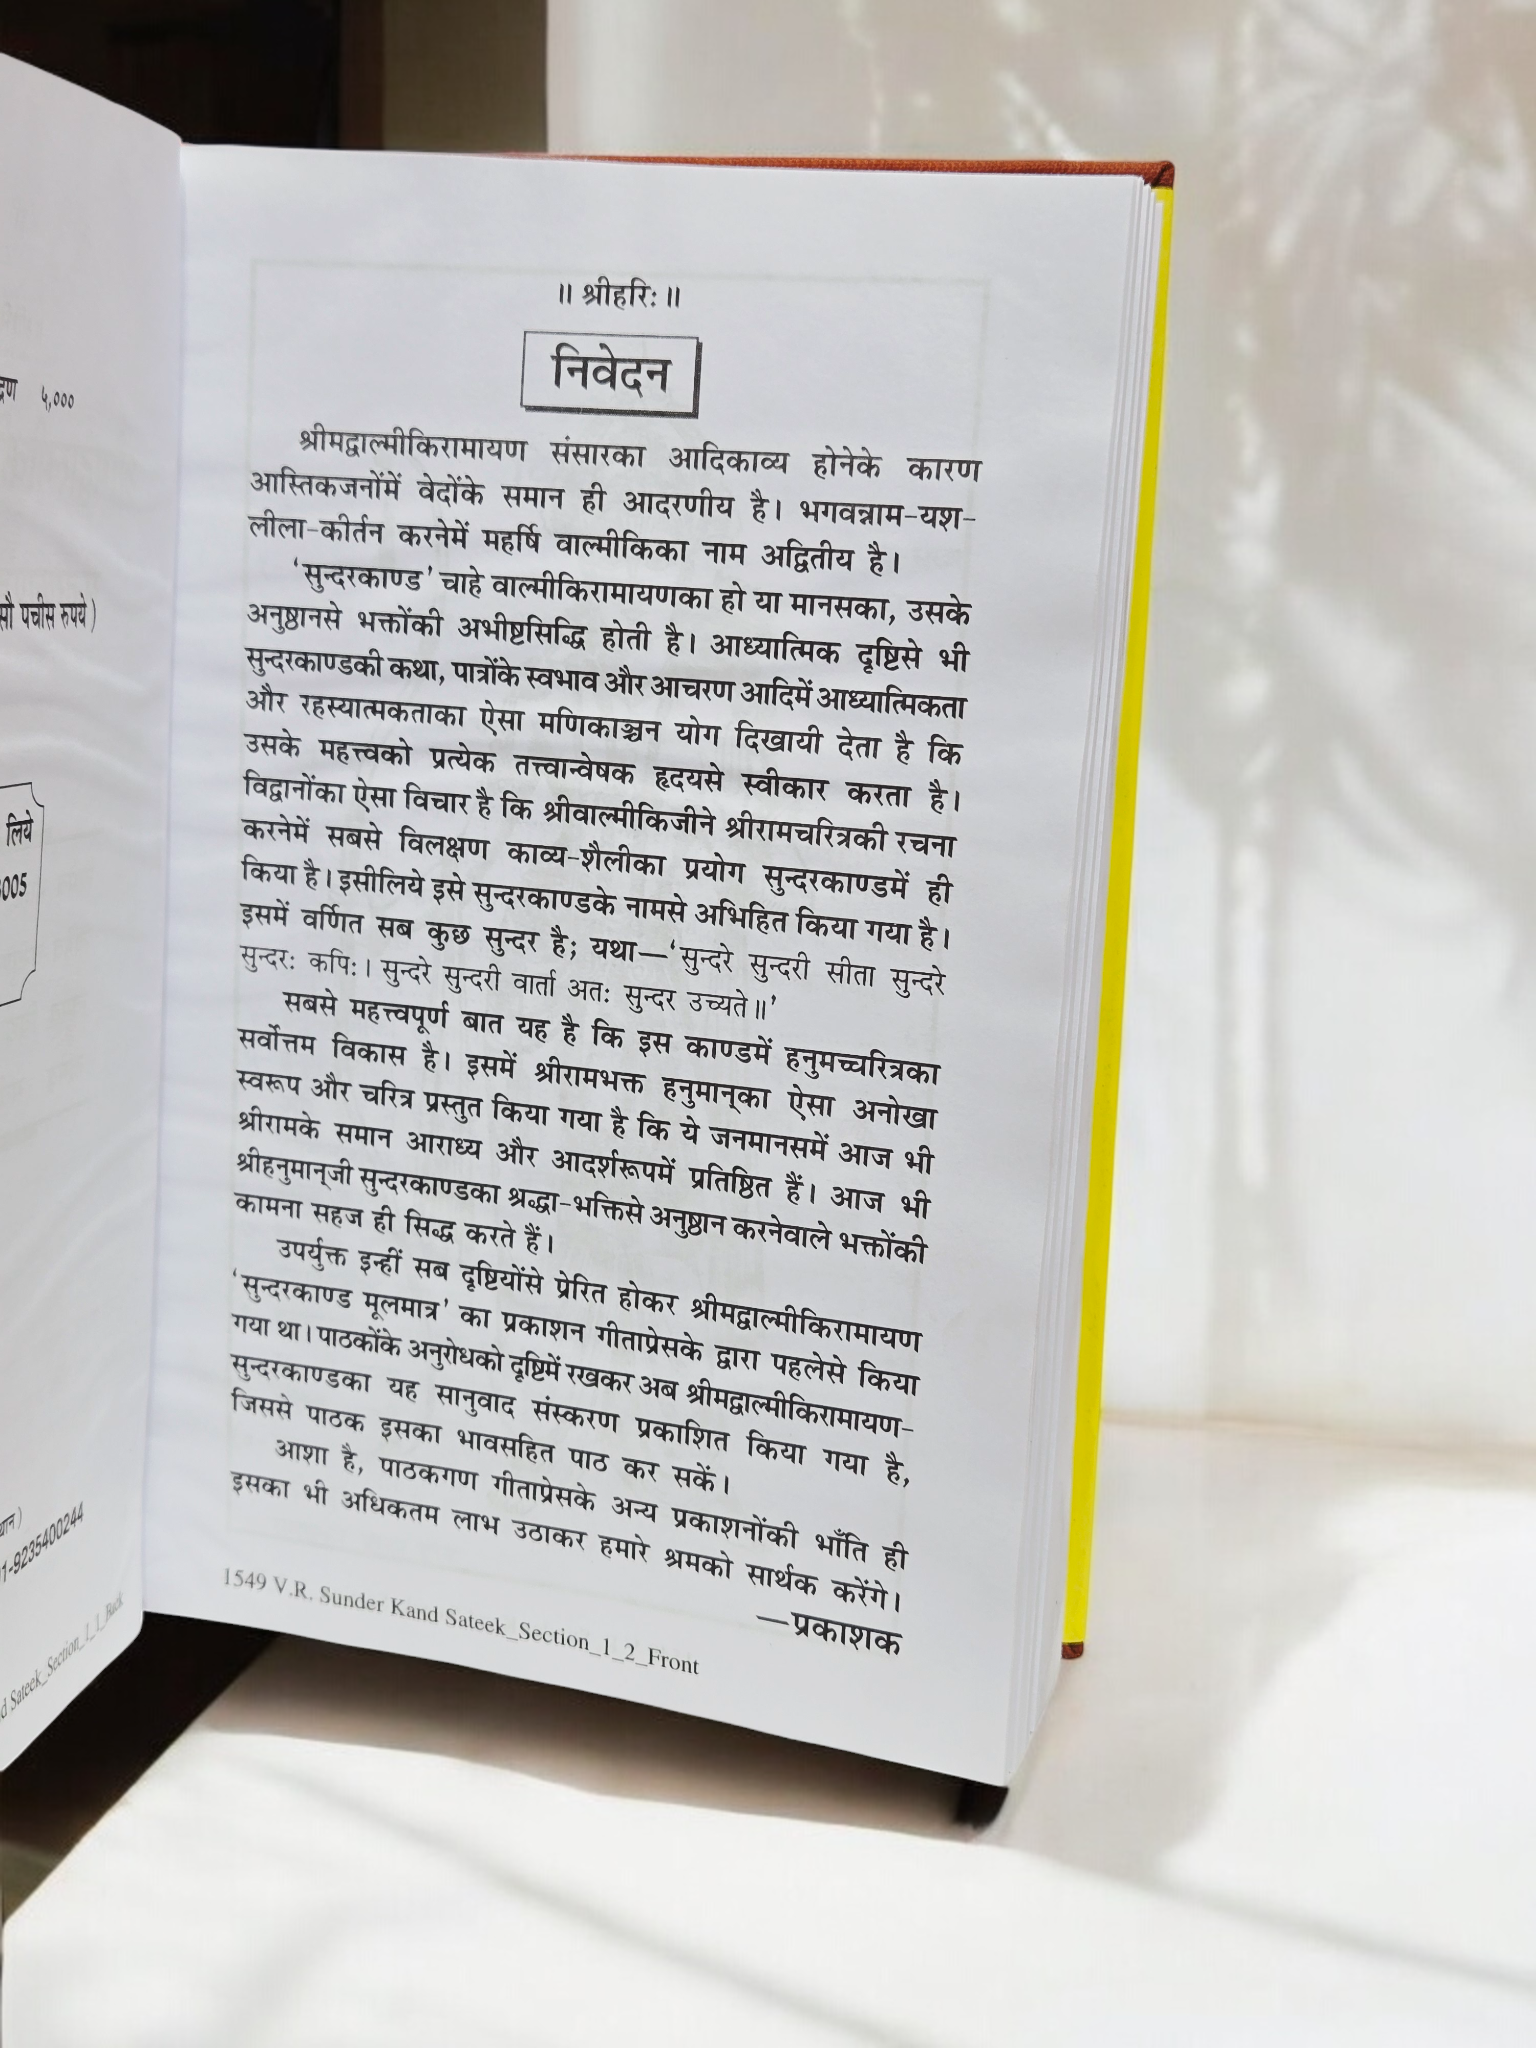 द्रण ५,०००
सौ पचीस रुपये)
लिये
005
1-9235400244
d Sateek_Section_1_1_Back
॥ श्रीहरिः ॥
निवेदन
श्रीमद्वाल्मीकिरामायण संसारका आदिकाव्य होनेके कारण
आस्तिकजनोंमें वेदोंके समान ही आदरणीय है। भगवन्नाम-यश-
लीला-कीर्तन करनेमें महर्षि वाल्मीकिका नाम अद्वितीय है।
‘सुन्दरकाण्ड’ चाहे वाल्मीकिरामायणका हो या मानसका, उसके
अनुष्ठानसे भक्तोंकी अभीष्टसिद्धि होती है। आध्यात्मिक दृष्टिसे भी
सुन्दरकाण्डकी कथा, पात्रोंके स्वभाव और आचरण आदिमें आध्यात्मिकता
और रहस्यात्मकताका ऐसा मणिकाञ्चन योग दिखायी देता है कि
उसके महत्त्वको प्रत्येक तत्त्वान्वेषक हृदयसे स्वीकार करता है।
विद्वानोंका ऐसा विचार है कि श्रीवाल्मीकिजीने श्रीरामचरित्रकी रचना
करनेमें सबसे विलक्षण काव्य-शैलीका प्रयोग सुन्दरकाण्डमें ही
किया है। इसीलिये इसे सुन्दरकाण्डके नामसे अभिहित किया गया है।
इसमें वर्णित सब कुछ सुन्दर है; यथा—‘सुन्दरे सुन्दरी सीता सुन्दरे
सुन्दरः कपिः। सुन्दरे सुन्दरी वार्ता अतः सुन्दर उच्यते॥’
सबसे महत्त्वपूर्ण बात यह है कि इस काण्डमें हनुमच्चरित्रका
सर्वोत्तम विकास है। इसमें श्रीरामभक्त हनुमान्‌का ऐसा अनोखा
स्वरूप और चरित्र प्रस्तुत किया गया है कि ये जनमानसमें आज भी
श्रीरामके समान आराध्य और आदर्शरूपमें प्रतिष्ठित हैं। आज भी
श्रीहनुमान्‌जी सुन्दरकाण्डका श्रद्धा-भक्तिसे अनुष्ठान करनेवाले भक्तोंकी
कामना सहज ही सिद्ध करते हैं।
उपर्युक्त इन्हीं सब दृष्टियोंसे प्रेरित होकर श्रीमद्वाल्मीकिरामायण
‘सुन्दरकाण्ड मूलमात्र’ का प्रकाशन गीताप्रेसके द्वारा पहलेसे किया
गया था। पाठकोंके अनुरोधको दृष्टिमें रखकर अब श्रीमद्वाल्मीकिरामायण-
सुन्दरकाण्डका यह सानुवाद संस्करण प्रकाशित किया गया है,
जिससे पाठक इसका भावसहित पाठ कर सकें।
आशा है, पाठकगण गीताप्रेसके अन्य प्रकाशनोंकी भाँति ही
इसका भी अधिकतम लाभ उठाकर हमारे श्रमको सार्थक करेंगे।
—प्रकाशक
1549 V.R. Sunder Kand Sateek_Section_1_2_Front